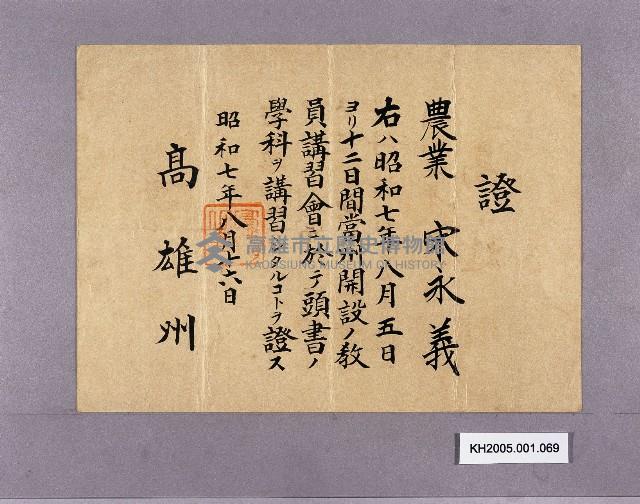 證
農業 宋永義
右ハ昭和七年八月五日
ヨリ十二日間當州開設ノ教
員講習會ニ於テ頭書ノ
學科ヲ講習シタルコトヲ證ス
昭和七年八月十六日
高雄州
高雄市立歷史博物館
KAOHSIUNG MUSEUM OF HISTORY
KH2005.001.069